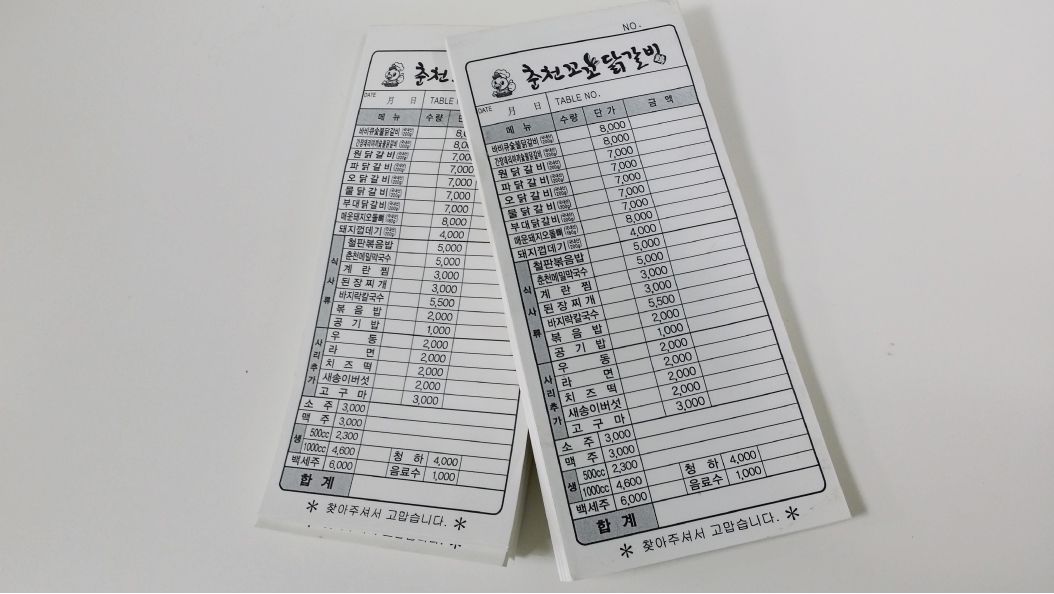 춘천꼬
DATE 月 日 TABLE N
메 뉴 수량
바비큐숯불닭갈비 국내산 200g 8,0
간장데리야끼숯불닭갈비 국내산 200g 8,00
원 닭 갈 비 국내산 200g 7,000
파 닭 갈 비 국내산 200g 7,000
오 닭 갈 비 국내산 200g 7,000
물 닭 갈 비 국내산 200g 7,000
부 대 닭 갈 비 국내산 200g 7,000
매운돼지오돌뼈 국내산 180g 8,000
돼지껍데기 국내산 200g 4,000
식사류
철판볶음밥 5,000
춘천메밀막국수 5,000
계 란 찜 3,000
된 장 찌 개 3,000
바지락칼국수 5,500
볶 음 밥 2,000
공 기 밥 1,000
사리추가
우 동 2,000
라 면 2,000
치 즈 떡 2,000
새송이버섯 2,000
고 구 마 3,000
소 주 3,000
맥 주 3,000
생 500cc 2,300
1000cc 4,600 청 하 4,000
백세주 6,000 음료수 1,000
합 계
* 찾아주셔서 고맙습니다. *
NO.
춘천꼬꼬닭갈빙
DATE 月 日 TABLE NO.
메 뉴 수량 단 가 금 액
바비큐숯불닭갈비 국내산 200g 8,000
간장데리야끼숯불닭갈비 국내산 200g 8,000
원 닭 갈 비 국내산 200g 7,000
파 닭 갈 비 국내산 200g 7,000
오 닭 갈 비 국내산 200g 7,000
물 닭 갈 비 국내산 200g 7,000
부 대 닭 갈 비 국내산 200g 7,000
매운돼지오돌뼈 국내산 180g 8,000
돼지껍데기 국내산 200g 4,000
식사류
철판볶음밥 5,000
춘천메밀막국수 5,000
계 란 찜 3,000
된 장 찌 개 3,000
바지락칼국수 5,500
볶 음 밥 2,000
공 기 밥 1,000
사리추가
우 동 2,000
라 면 2,000
치 즈 떡 2,000
새송이버섯 2,000
고 구 마 3,000
소 주 3,000
맥 주 3,000
생 500cc 2,300
1000cc 4,600 청 하 4,000
백세주 6,000 음료수 1,000
합 계
* 찾아주셔서 고맙습니다. *